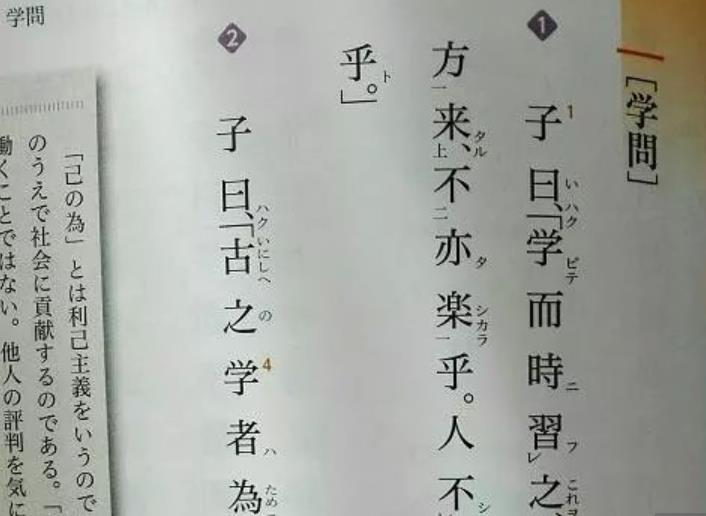 [学問]
1
子曰、「学而時習之、
方来、不亦楽乎。人不
乎。」
2
子曰、「古之学者為
学問
「己の為」とは利己主義をいうので
のうえで社会に貢献するのである。「
働くことではない。他人の評判を気に